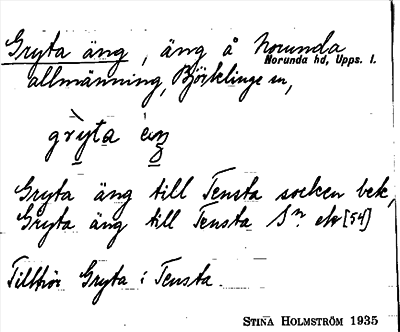 Gryta äng, äng å Norunda
Norunda hd, Upps. l.
allmänning, Björklinge sn,
gryta äŋ
Gryta äng till Tensta socken bek,
Gryta äng till Tensta Sn ek [54]
Tillhör Gryta i Tensta.
STINA HOLMSTRÖM 1935